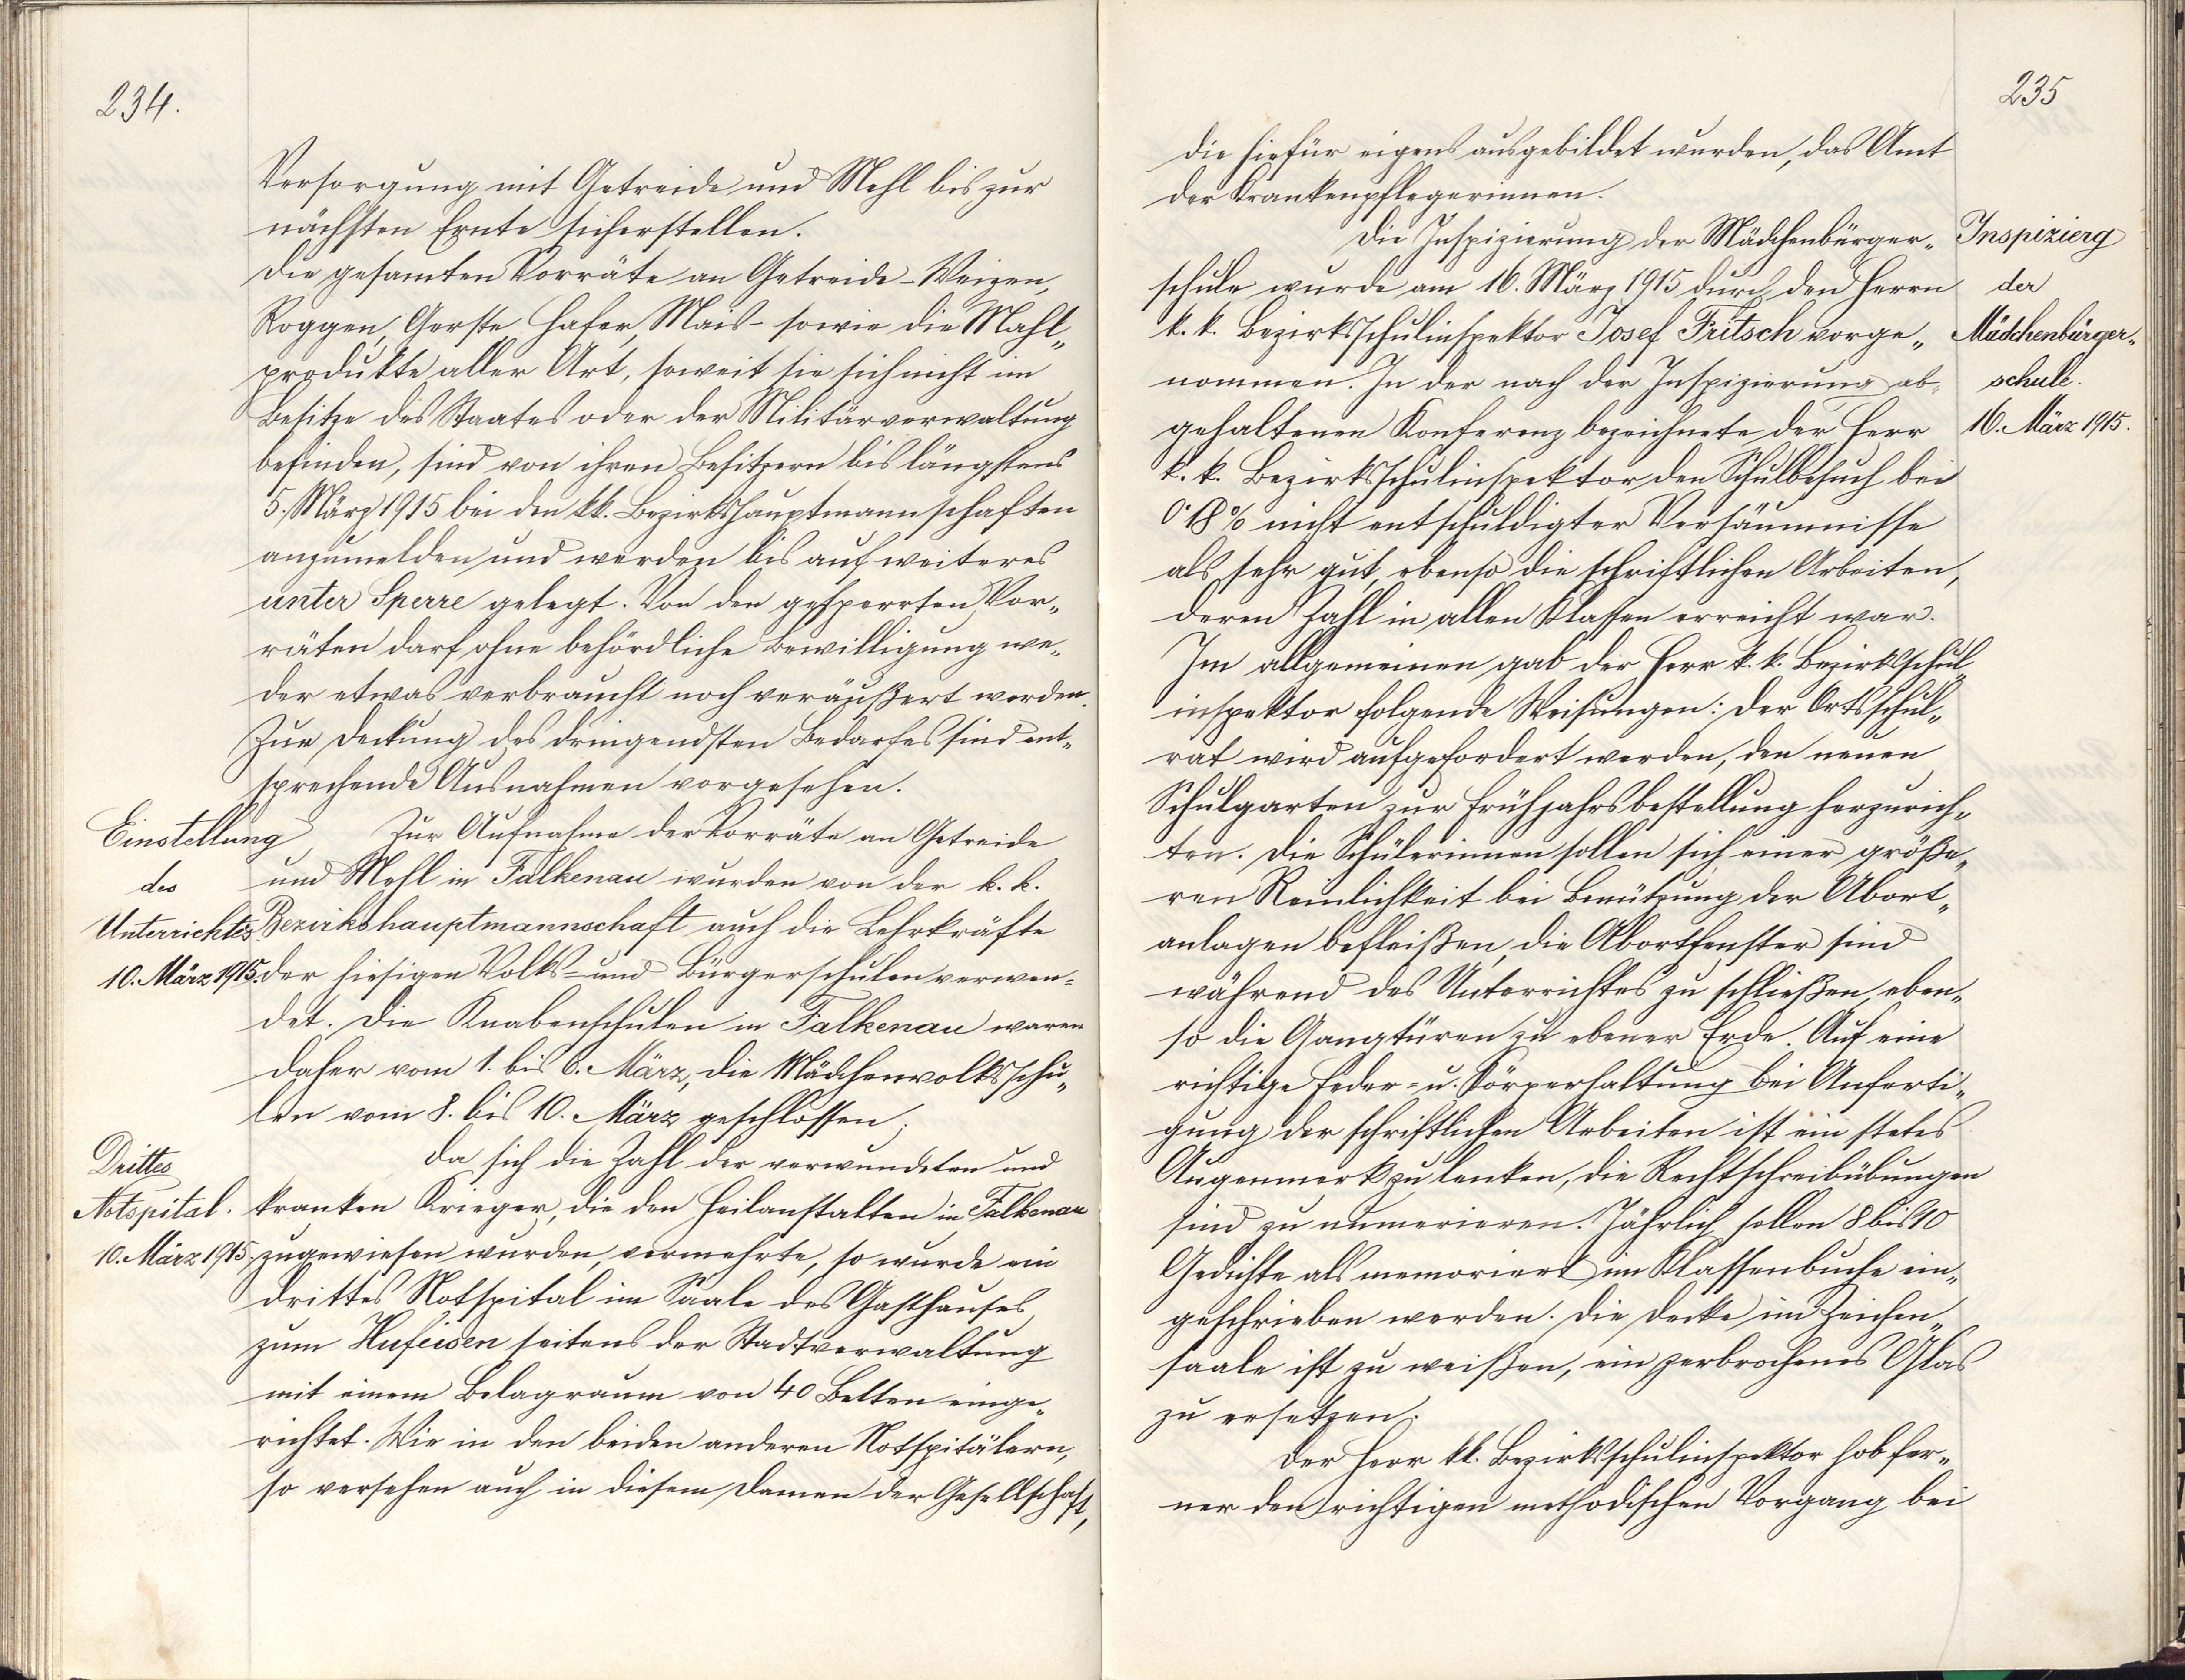 234.
Versorgung mit Getreide und Mehl bis zur
nächsten Ernte sicherstellen.
Die gesamten Vorräte an Getreide - Weizen,
Roggen, Gerste Hafer, Mais - sowie die Mahl„
produkte aller Art, soweit sie sich nicht im
Besitze des Staates oder der Militärverwaltung
befinden, sind von ihren Besitzern bis längstens
5. März 1915 bei den kk. Bezirkshauptmannschaften
anzumelden und werden bis auf weiteres
unter Sperre gelegt. Von den gesperrten Vor„
räten darf ohne behördliche Bewilligung we„
der etwas verbraucht noch veräußert werden.
Zur Deckung des dringendsten Bedarfes sind ent„
sprechende Ausnahmen vorgesehen.
Einstellung
des
Unterrichtes
10. März 1915.
Zur Aufnahme der Vorräte an Getreide
und Mehl in Falkenau wurden von der k. k.
Bezirkshauptmannschaft auch die Lehrkräfte
der hiesigen Volks- und Bürgerschulen verwen-
det. Die Knabenschulen in Falkenau waren
daher vom 1. bis 6. März, die Mädchenvolksschu„
len vom 8. bis 10. März geschlossen.
Drittes
Notspital.
10. März 1915.
Da sich die Zahl der verwundeten und
kranken Krieger, die den Heilanstalten in Falkenau
zugewiesen wurden, vermehrte, so wurde ein
drittes Notspital im Saale des Gasthauses
zum Hufeisen seitens der Stadtverwaltung
mit einem Belagraum von 40 Betten einge„
richtet. Wie in den beiden anderen Notspitälern,
so versehen auch in diesem Damen der Gesellschaft,
235
die hiefür eigens ausgebildet wurden, das Amt
der Krankenpflegerinnen.
Inspizierg
der
Mädchenbürger„
schule.
16. März 1915.
Die Inspizierung der Mädchenbürger„
schule wurde am 16. März 1915 durch den Herrn
k. k. Bezirksschulinspektor Josef Fritsch vorge„
nommen. In der nach der Inspizierung ab„
gehaltenen Konferenz bezeichnete der Herr
k. k. Bezirksschulinspektor den Schulbesuch bei
0·18% nicht entschuldigter Versäumnisse
als sehr gut, ebenso die schriftlichen Arbeiten,
deren Zahl in allen Klassen erreicht war.
Im allgemeinen gab der Herr k. k. Bezirksschul„
inspektor folgende Weisungen: Der Ortsschul„
rat wird aufgefordert werden, den neuen
Schulgarten zur Frühjahrsbestellung herzurich„
ten. Die Schülerinnen sollen sich einer größe„
ren Reinlichkeit bei Benützung der Abort„
anlagen befleißen, die Abortfenster sind
während des Unterrichtes zu schließen, eben„
so die Gangtüren zu ebener Erde. Auf eine
richtige Feder- u. Körperhaltung bei Anferti„
gung der schriftlichen Arbeiten ist ein stetes
Augenmerk zu lenken, die Rechtschreibübungen
sind zu numerieren. Jährlich sollen 8 bis 10
Gedichte als memoriert im Klassenbuche ein„
geschrieben werden. Die Decke im Zeichen„
saale ist zu weißen, ein zerbrochenes Glas
zu ersetzen.
Der Herr kk. Bezirksschulinspektor hob fer„
ner den richtigen methodischen Vorgang bei